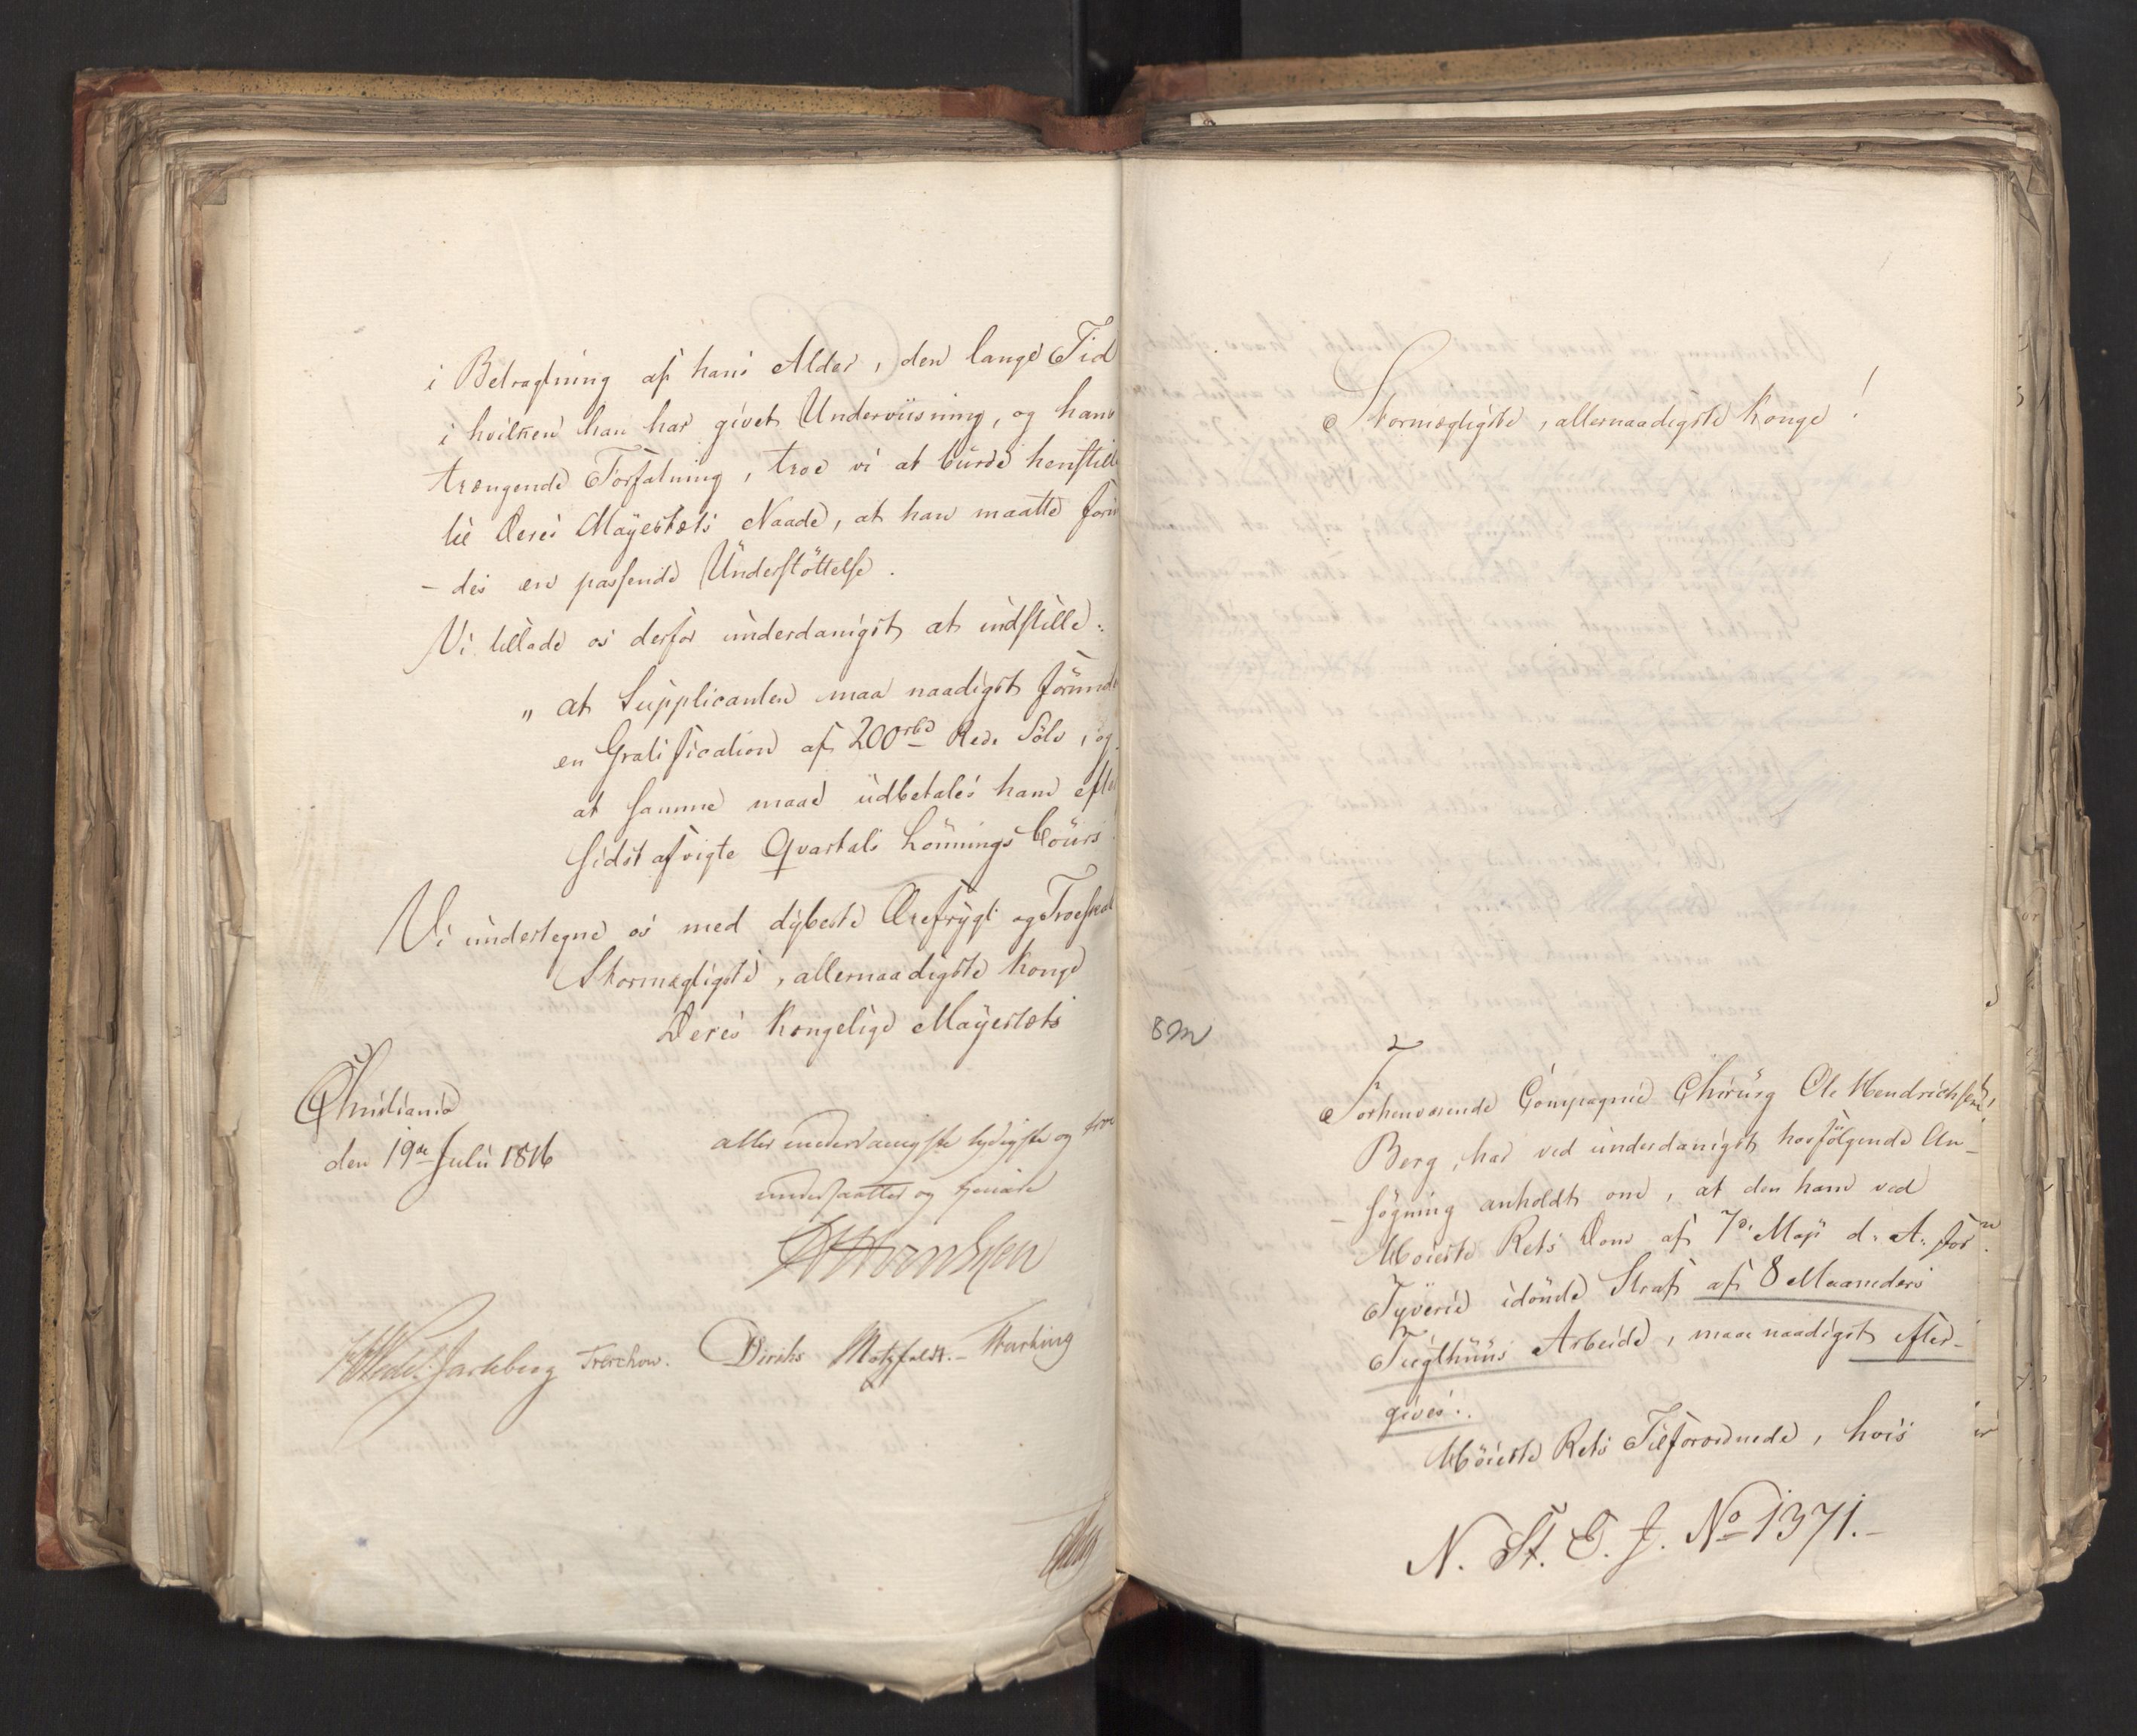 i Betragtning af hans Alder, den lange Tid
i hvilken han har givet Underviisning, og hans
trængende Forfatning, troe vi at burde henstille
til Deres Mayestæts Naade, at han maatte forun
- des en passende Understöttelse.
Vi tillade os derfor underdanigst at indstille:
" at Supplicanten maa naadigst forundes
en Gratification af 200 rbd Rede Sölv, og
at samme maae udbetales ham efter
sidst afvigte Qvartals Lönnings Cours.
Vi undertegne os med dybeste Ærefrygt og Troeskab
Stormægtigste, allernaadigste Konge
Deres Kongelige Mayestæts
Christiania
den 19de Julii 1816
aller underdanigste lydigste og troe
undersaatter og tienere
Wedel Jarlsberg Treschow. Diriks Motzfeldt.
Stormægtigste, allernaadigste Konge!
8 M
2
Forhenværende Compagnie Chirurg Ole Hendrichsen
Berg, har ved underdanigst hosfölgende An-
- sögning anholdt om, at den ham ved
Höieste Rets Dom af 7de Maji d. A. for
Tyverie idömte Straf af 8 Maaneders
Tugthuus Arbeide, maae naadigst efter-
gives.
Höieste Rets Tilforordnede, hvis
N. St. C. J. No 1371.-